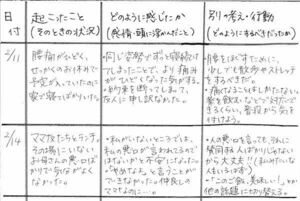 日付
起こったこと
(そのときの状況)
どのように感じたか
(感情・頭に浮かんだこと)
別の考え・行動
(どのようにするべきだったか)
2/11
腰痛がひどく、
せっかくのお休みで
予定が入っていたのに
家で寝てばかりいた。
・同じ姿勢でずっと寝続け
てしまったことで、より痛み
がひどくなった気がする。
・約束を断ってしまって、
友人に申し訳なかった。
・腰をほぐすために、
少しでも散歩やストレッチ
をするべきだ。
・痛くなることもしかたない。
薬を飲んだりして対応で
きるくらい、普段から気を
付けよう。
2/14
ママ友たちとランチ。
その場にいない
お母さんの悪口ば
かりで気分がよく
なかった。
・私がいないところでは、
私の悪口が言われてるので
はないかと不安になった。
・「やめなよ」と言うことが
できなかった。仲良しの
ママなのに…。
・人の悪口を言っても、それに
賛同する人ばかりじゃない
から大丈夫!!(私みたいな
人もいるはず)
・「このご飯、美味しい!」とか
他の話題に切り替える。